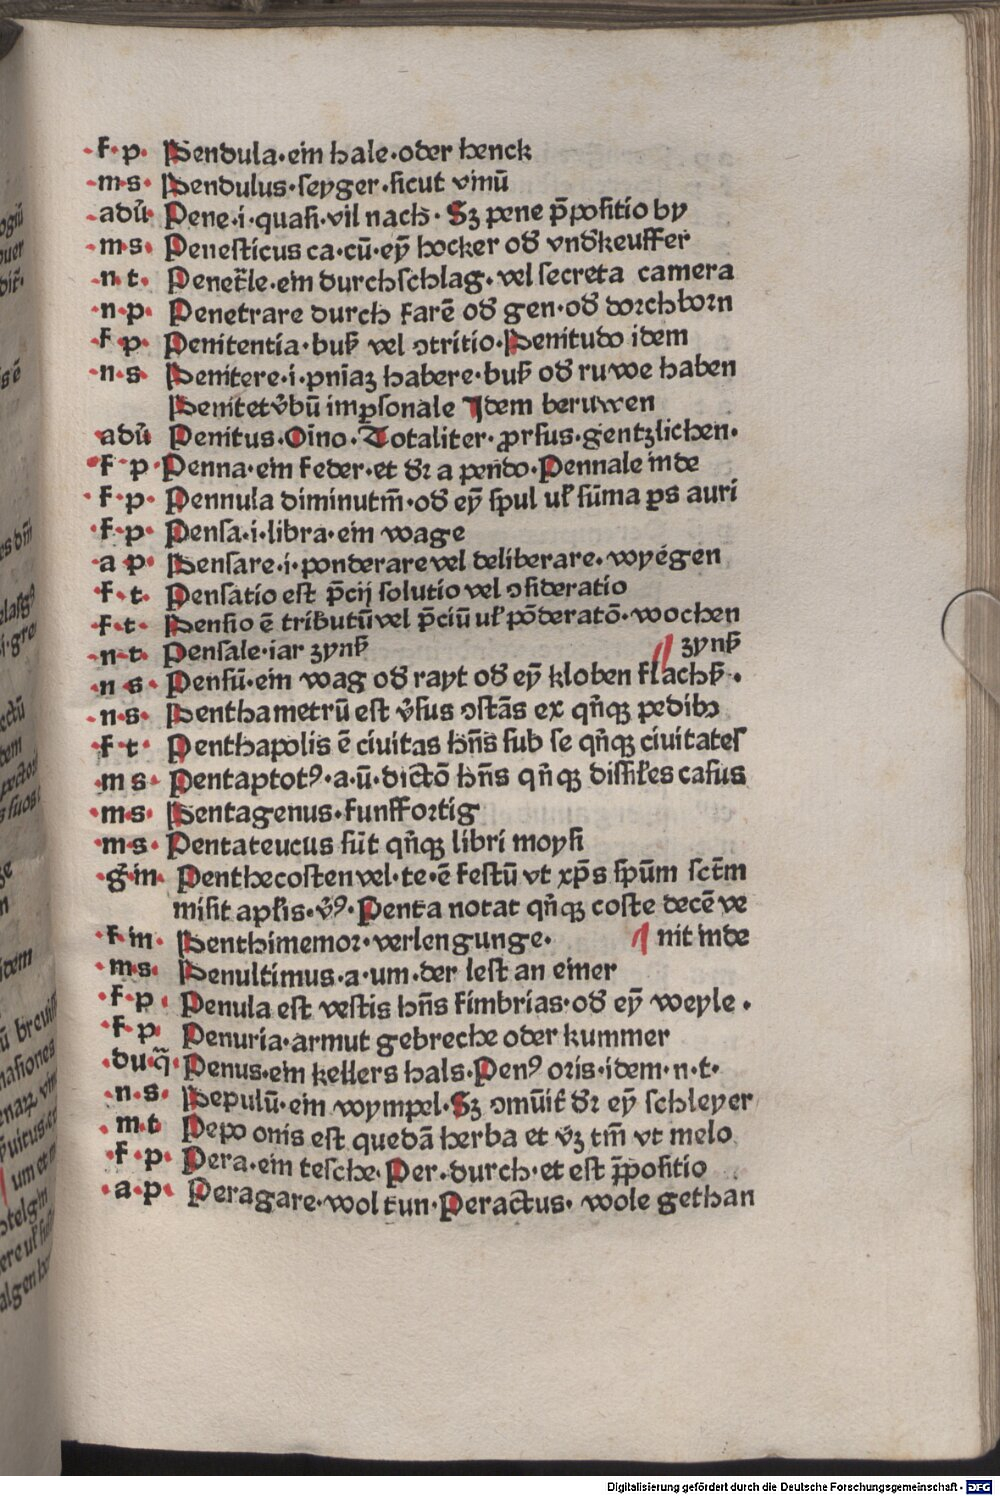 f·p· Pendula·ein hale·oder henck
·m·s· Pendulus·seyger·sicut vinū
·adū· Pene·i·quasi·vil nach· Sꝫ pene p̄positio by
·m·s· Penesticus ca·cū·eȳ hocker od̛ vnd̛keuffer
·n·t· Penet̄le·ein durchschlag·vel secreta camera
·n·p· Penetrare durch farē od̛ gen·od̛ dorchborn
f·p· Penitentia·buß vel ɔtritio·Penitudo idem
·n·s· Penitere·i·pn̄iaꝫ habere·buß od̛ ruwe haben
Penitet v̛bū imꝑsonale Idem beruwen
adū Penitus·Oīno·Totaliter·ꝓrsus·gentzlichen·
·f·p· Penna·ein feder·et dr̛ a pendo·Pennale inde
·f·p· Pennula diminutm̄·od̛ eȳ spul ul̛ sūma ꝑs auri
·f·p· Pensa·i·libra·ein wage
·a p· Pensare·i·ponderare vel deliberare·woyegen
·f·t· Pensatio est p̄cij solutio vel ɔsideratio
·f·t· Pensio ē tributū vel p̄ciū ul̛ pōderatō·wochen
·n·t· Pensale·iar zynß zynß
·n s· Pensū·ein wag od̛ rayt od̛ eȳ kloben flachß·
·n·s· Penthametrū est v̛sus ɔstās ex qn̄qꝫ pedibꝫ
·f·t· Penthapolis ē ciuitas hn̄s sub se qn̄qꝫ ciuitates
·m s· Pentaptotꝰ·a·ū·dictō hn̄s qn̄qꝫ disſil̛es casus
·m·s· Pentagenus·funffortig
·m·s· Pentateucus sūt qn̄qꝫ libri moysi
·g̛·m· Penthecosten vel·te·ē festū vt xp̄s sp̄um sct̄m
misit apl̛is·v̛ꝰ·Penta notat qn̄qꝫ coste decē ve
·f·m· Penthimemor·verlengunge· nit inde
·m·s· Penultimus·a·um·der lest an einer
·f·p· Penula est vestis hn̄s fimbrias·od̛ eȳ weyle·
·f·p· Penuria·armut gebreche oder kummer
·du·q̄· Penus·ein kellers hals·Penꝰ oris·idem·n·t·
·n·s· Pepulū·ein woympel·Sꝫ ɔmūit̛ dr̛ eȳ schleyer
·m·t Pepo onis est quedā herba et v̛ꝫ tm̄ vt melo
·f·p· Pera·ein tesche·Per·durch·et est p̄positio
·a·p· Peragare·wol tun·Peractus·wole gethan
Digitalisierung gefördert durch die Deutsche Forschungsgemeinschaft - DFG